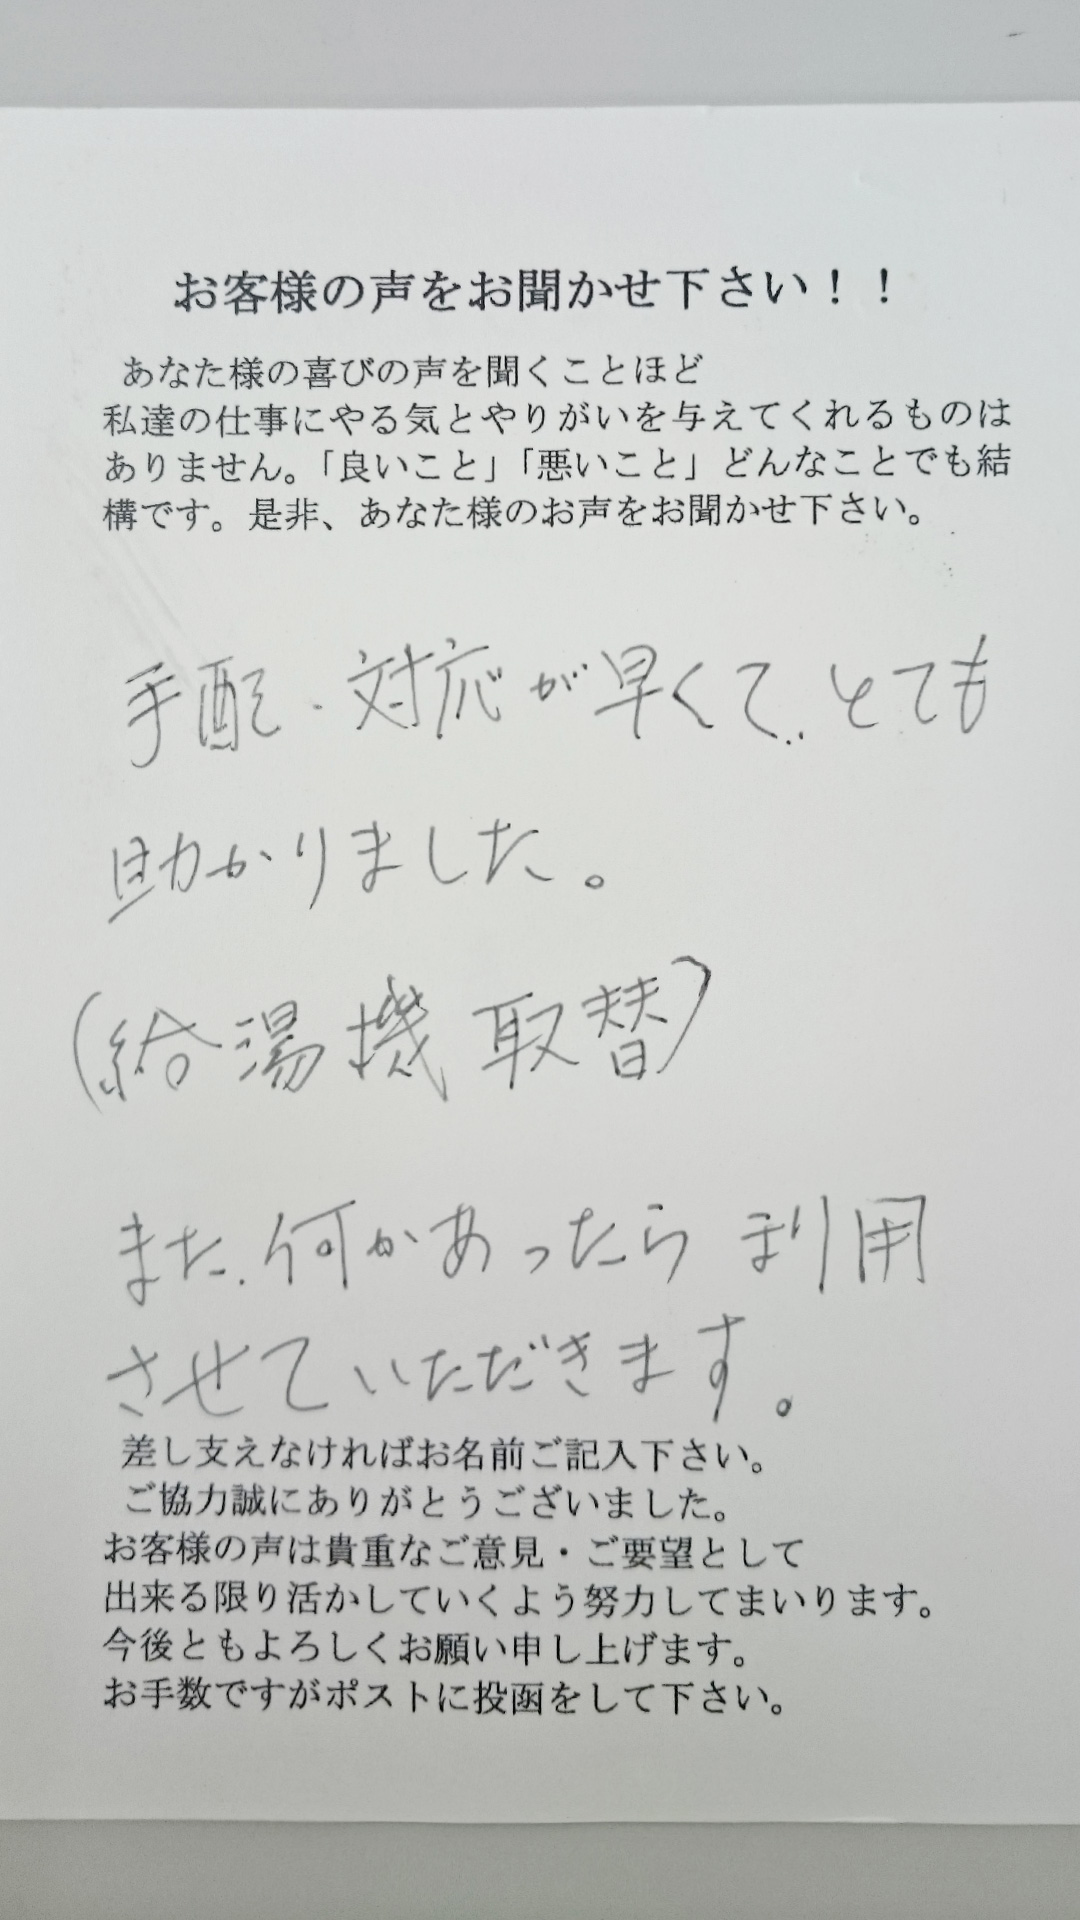 お客様の声をお聞かせ下さい！！
あなた様の喜びの声を聞くことほど
私達の仕事にやる気とやりがいを与えてくれるものは
ありません。「良いこと」「悪いこと」どんなことでも結
構です。是非、あなた様のお声をお聞かせ下さい。
手配・対応が早くて、とても
助かりました。
(給湯機取替)
また、何かあったら利用
させていただきます。
差し支えなければお名前ご記入下さい。
ご協力誠にありがとうございました。
お客様の声は貴重なご意見・ご要望として
出来る限り活かしていくよう努力してまいります。
今後ともよろしくお願い申し上げます。
お手数ですがポストに投函をして下さい。